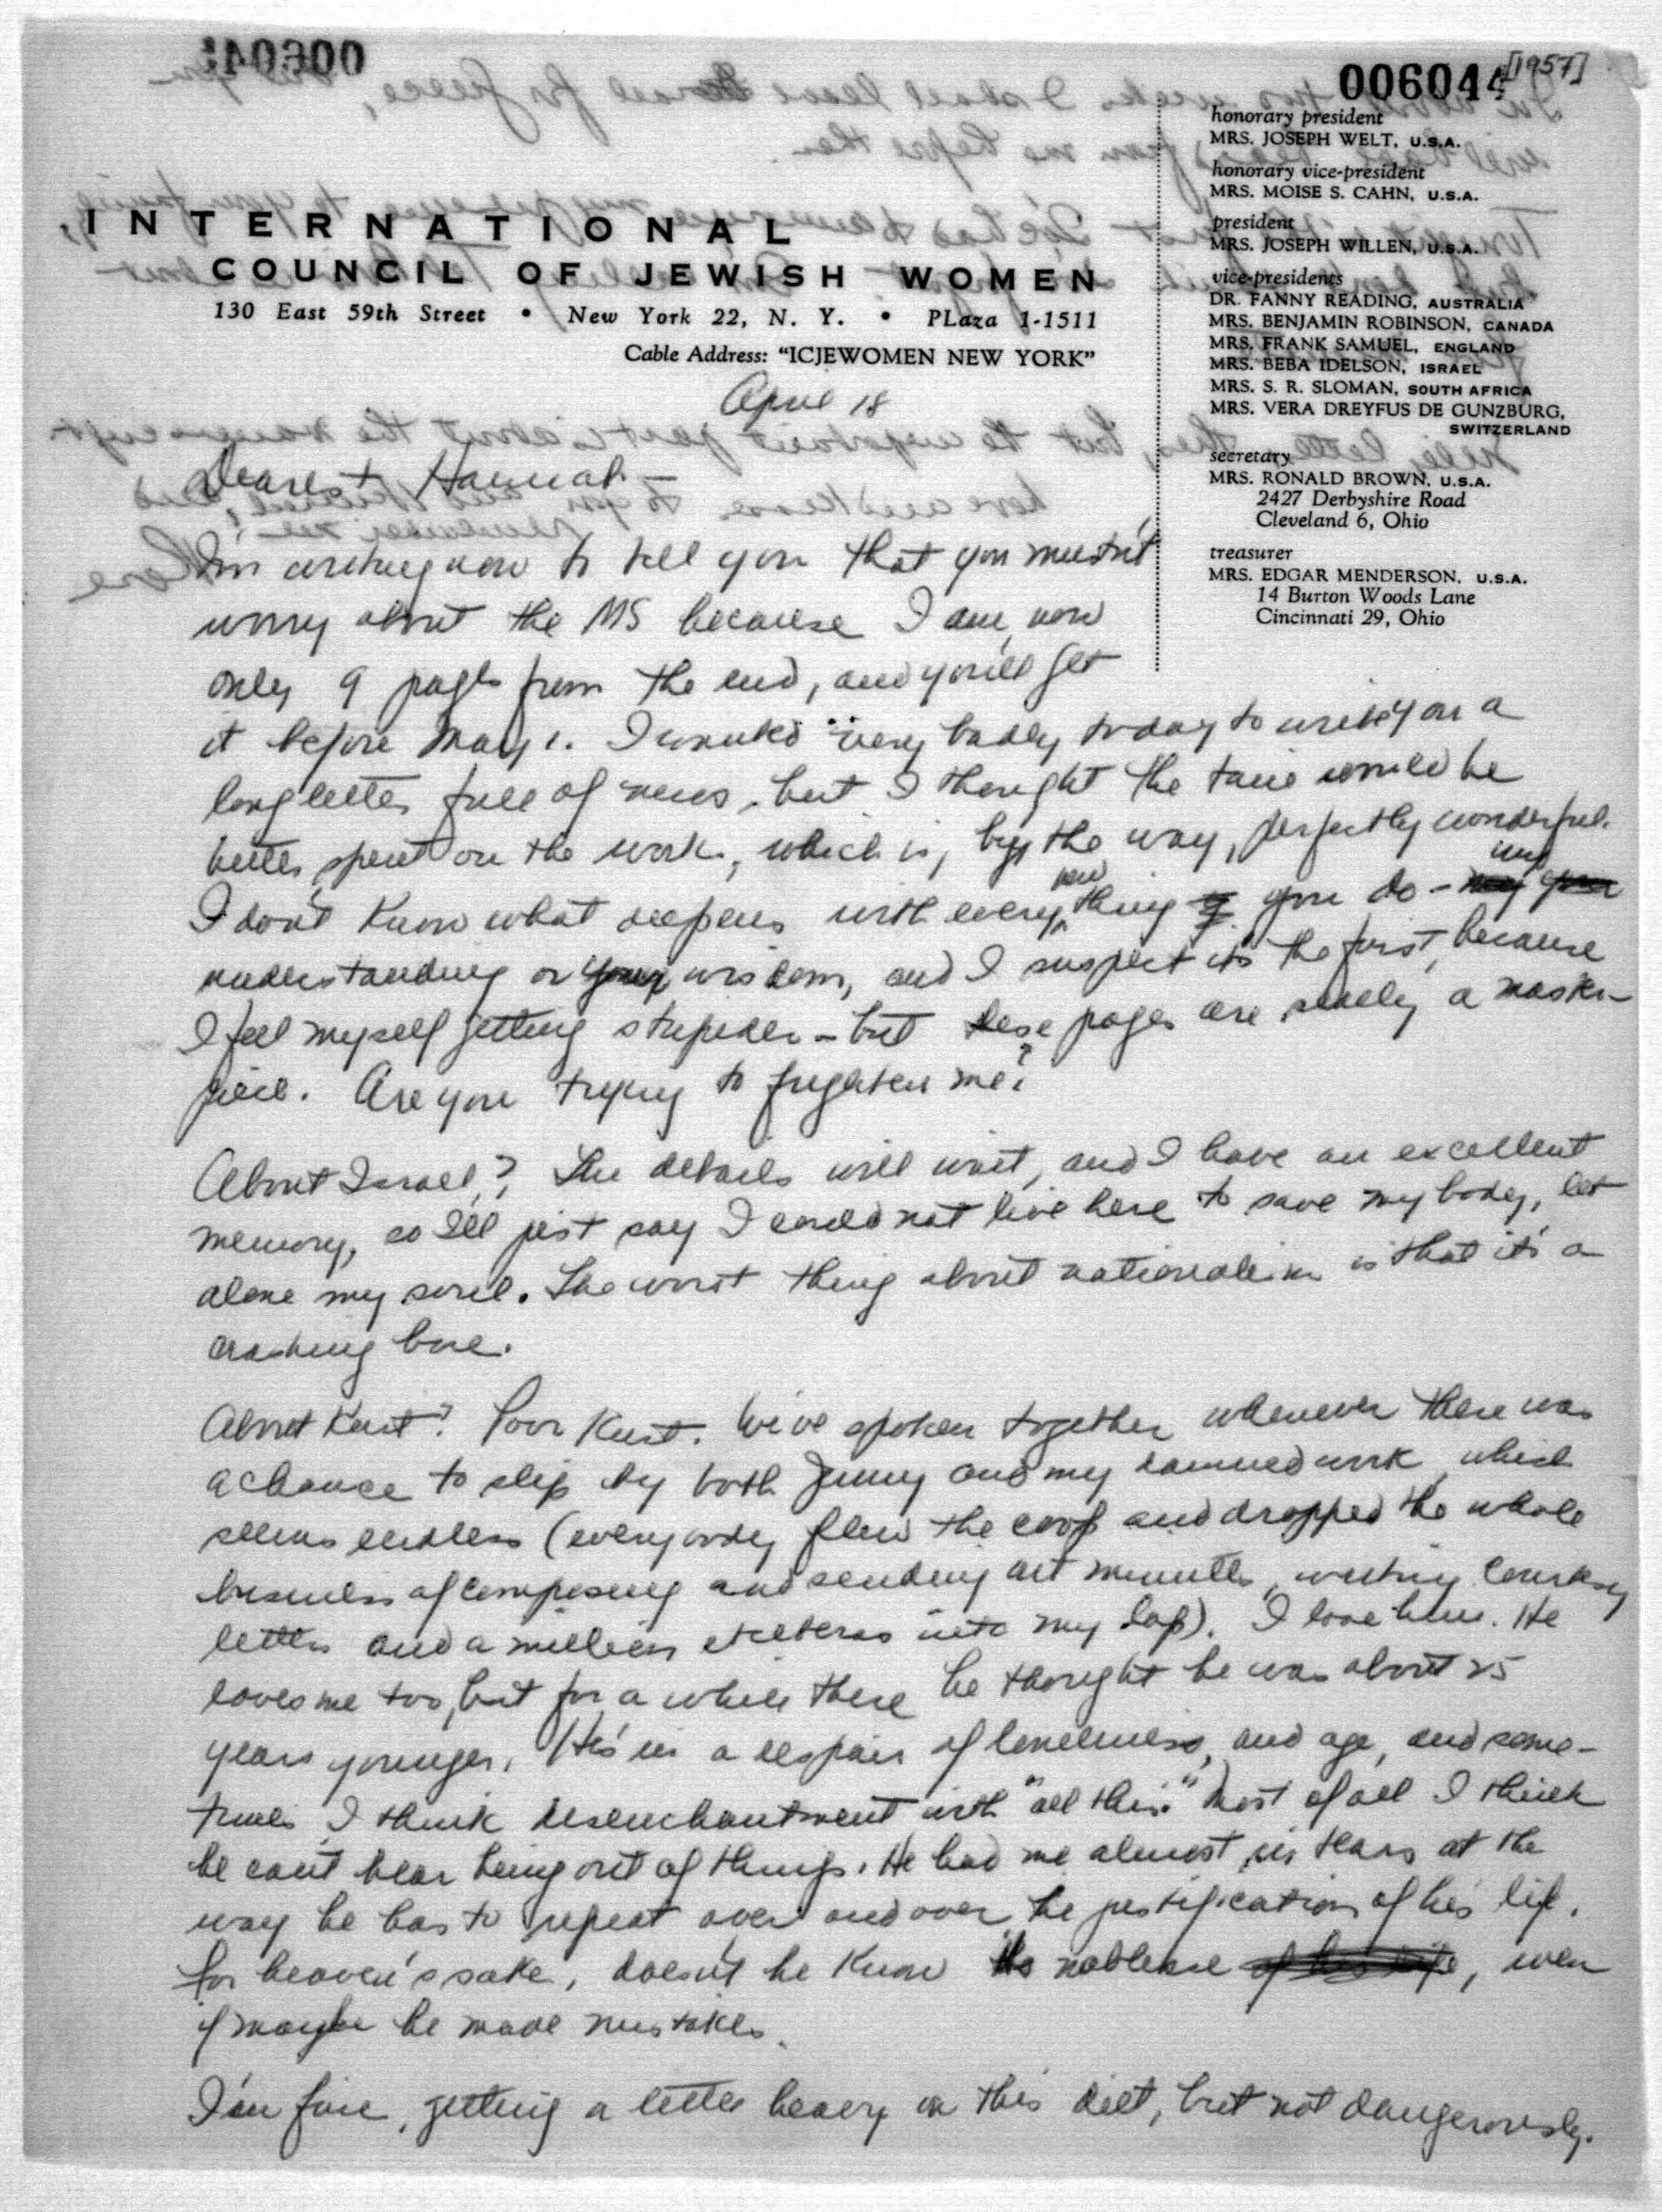 006044 [1957]
INTERNATIONAL
COUNCIL OF JEWISH WOMEN
130 East 59th Street • New York 22, N. Y. • PLaza 1-1511
Cable Address: "ICJEWOMEN NEW YORK"
honorary president
MRS. JOSEPH WELT, U.S.A.
honorary vice-president
MRS. MOISE S. CAHN, U.S.A.
president
MRS. JOSEPH WILLEN, U.S.A.
vice-presidents
DR. FANNY READING, AUSTRALIA
MRS. BENJAMIN ROBINSON, CANADA
MRS. FRANK SAMUEL, ENGLAND
MRS. BEBA IDELSON, ISRAEL
MRS. S. R. SLOMAN, SOUTH AFRICA
MRS. VERA DREYFUS DE GUNZBURG,
SWITZERLAND
secretary
MRS. RONALD BROWN, U.S.A.
2427 Derbyshire Road
Cleveland 6, Ohio
treasurer
MRS. EDGAR MENDERSON, U.S.A.
14 Burton Woods Lane
Cincinnati 29, Ohio
April 18
Dearest Hannah —
I'm writing now to tell you that you mustn't
worry about the MS because I am now
only 9 pages from the end, and you'll get
it before May 1. I wanted very badly today to write you a
long letter full of news, but I thought the time would be
better spent on the work, which is, by the way, perfectly wonderful.
I don't know what deepens with every new thing you do - my
understanding or your wisdom, and I suspect it's the first, because
I feel myself getting stupider - but these pages are really a master-
piece. Are you trying to frighten me?
About Israel? The details will wait, and I have an excellent
memory, so I'll just say I could not live here to save my body, let
alone my soul. The worst thing about nationalism is that it's a
crashing bore.
About Kurt? Poor Kurt. We've spoken together whenever there was
a chance to slip by both Jenny and my damned work, which
seems endless (everybody flew the coop and dropped the whole
business of composing and sending out minutes, writing courtesy
letters and a million etceteras into my lap). I love him. He
loves me too, but for a while there he thought he was about 25
years younger. He's in a despair of loneliness, and age, and some-
times I think disenchantment with "all this." Most of all I think
he can't bear being out of things. He had me almost in tears at the
way he has to repeat over and over the justification of his life.
For heaven's sake, doesn't he know its noblesse, even
if maybe he made mistakes.
I'm fine, getting a little heavy on this diet, but not dangerously.